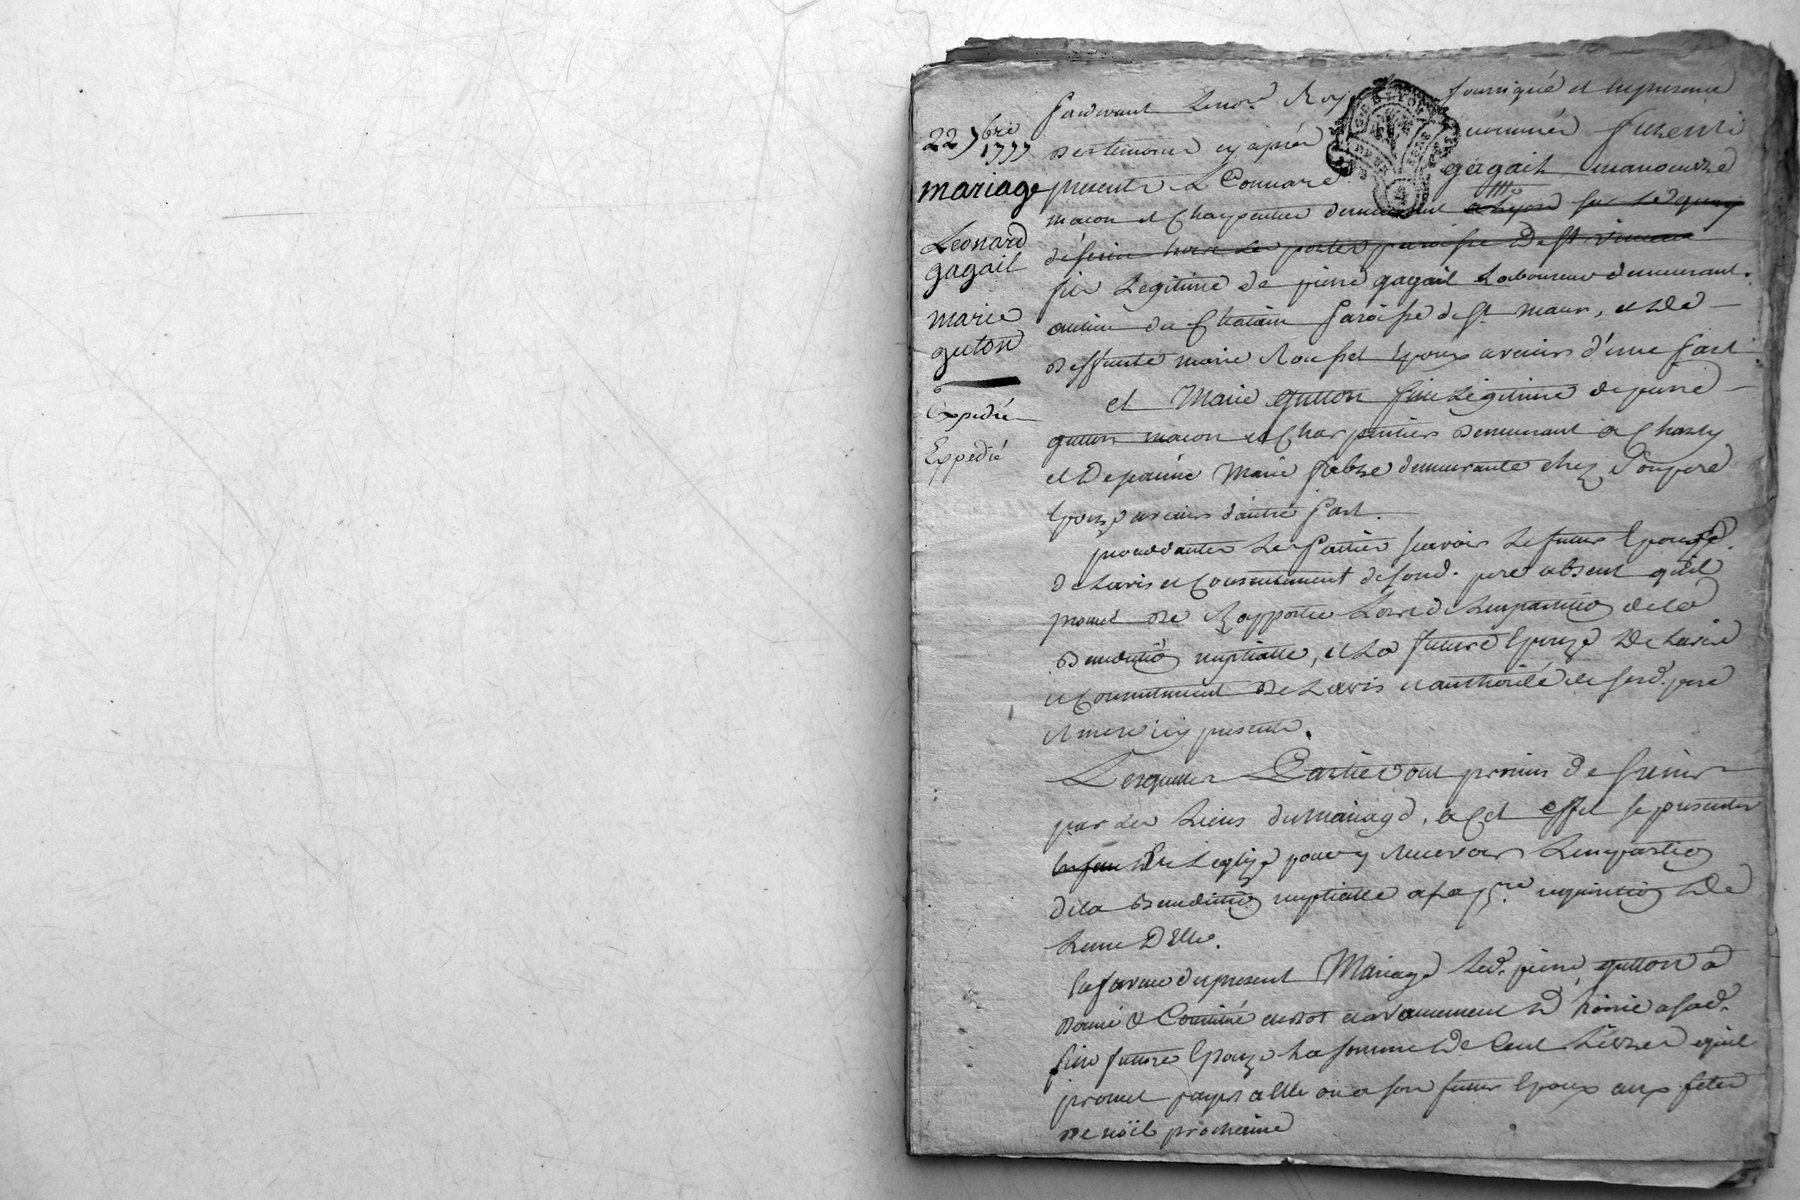 22 7bre 1777
mariage
Leonard
gagail
marie
guton
Expedié
Expedié
Pardevant Le no.re Roy soussigné et En presence
Des temoins cy après nommés furent
presents Leonnard gagail manoeuvre
macon et charpentier demeurant a Lyon sur Le quay
paroisse De st vincent
fils Legitime de pierre gagail Laboureur demeurant
au lieu du Chatain paroisse de st maur, et De
deffunte marie Rousset Epoux avenir d'une part
et Marie gutton fille Legitime de pierre
gutton macon et Charpentier Demeurant a Chasly
et De jeanne Marie fabre demeurante chez Son pere
Epouze avenir d'autre part.
procedantes Les Parties scavoir Le futur Epoux
de Lavis et Consentement de sond. pere absent quil
promet De Rapporter Lors de Limpartition de la
Benediction nuptialle, et La future Epouze De Lavis
et Consentement De Lavis et authorité de sesd. pere
et mere icy presents.
Lesquelles Parties ont promis de s'unir
par les Liens du Mariage, a Cet effet se presenter
En face De Leglize pour y Recevoir Limpartion
de la Benediction nuptialle a la pre requisition De
Lune D'Elles.
En faveur du present Mariage Led. pierre gutton a
Donné & Constitué en dot et avancement D'hoirie a sad.
fille future Epouze La somme De Cent Livres quil
promet payer a Elle ou a son futur Epoux aux fetes
De noël prochaine